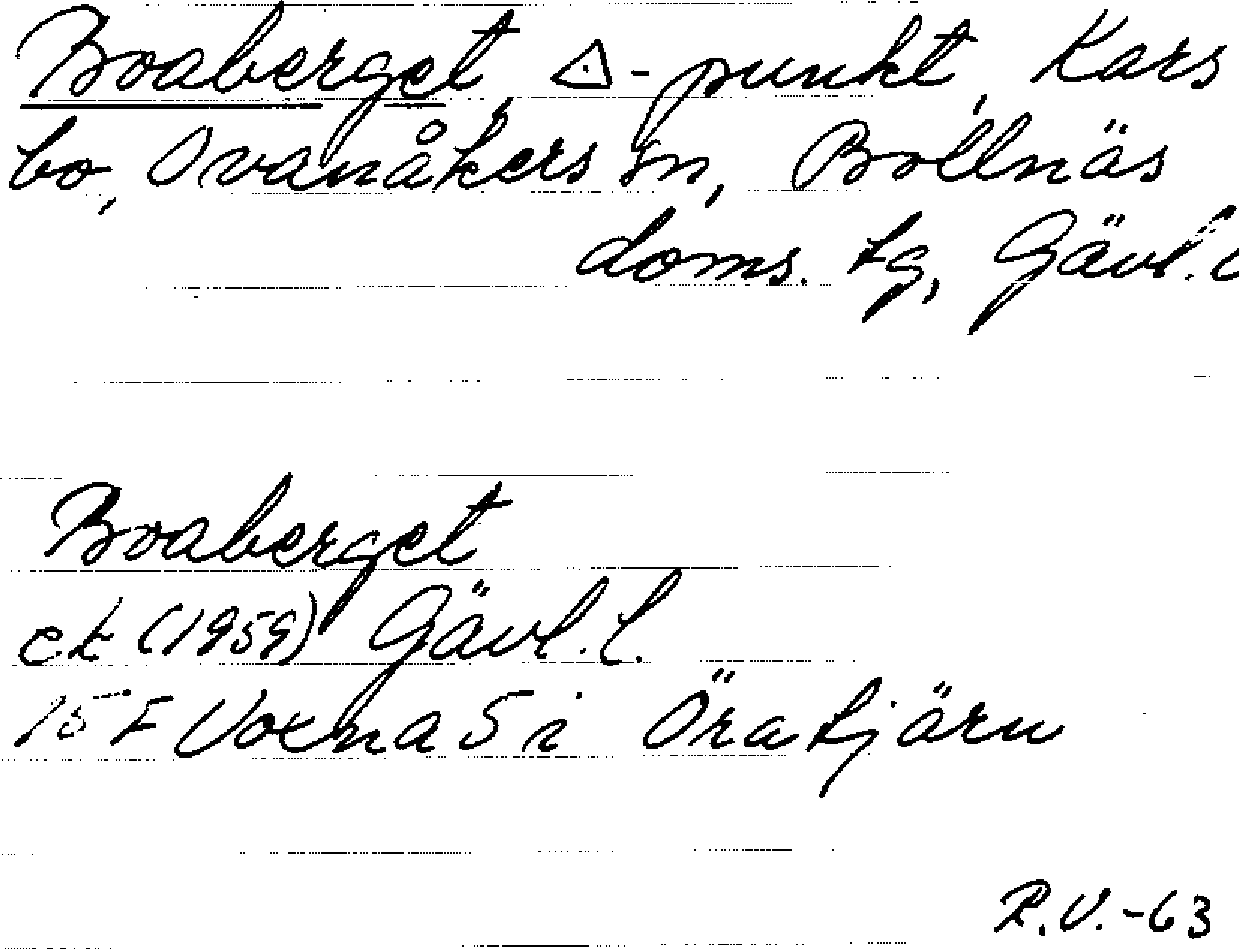 Boaberget, △-punkt, Kars
bo, Ovanåkers sn, Bollnäs
doms. tg, Gävl. l
Boaberget
ek (1959) Gävl. l.
15 F Voxna 5 i Öratjärn
R.V.-63